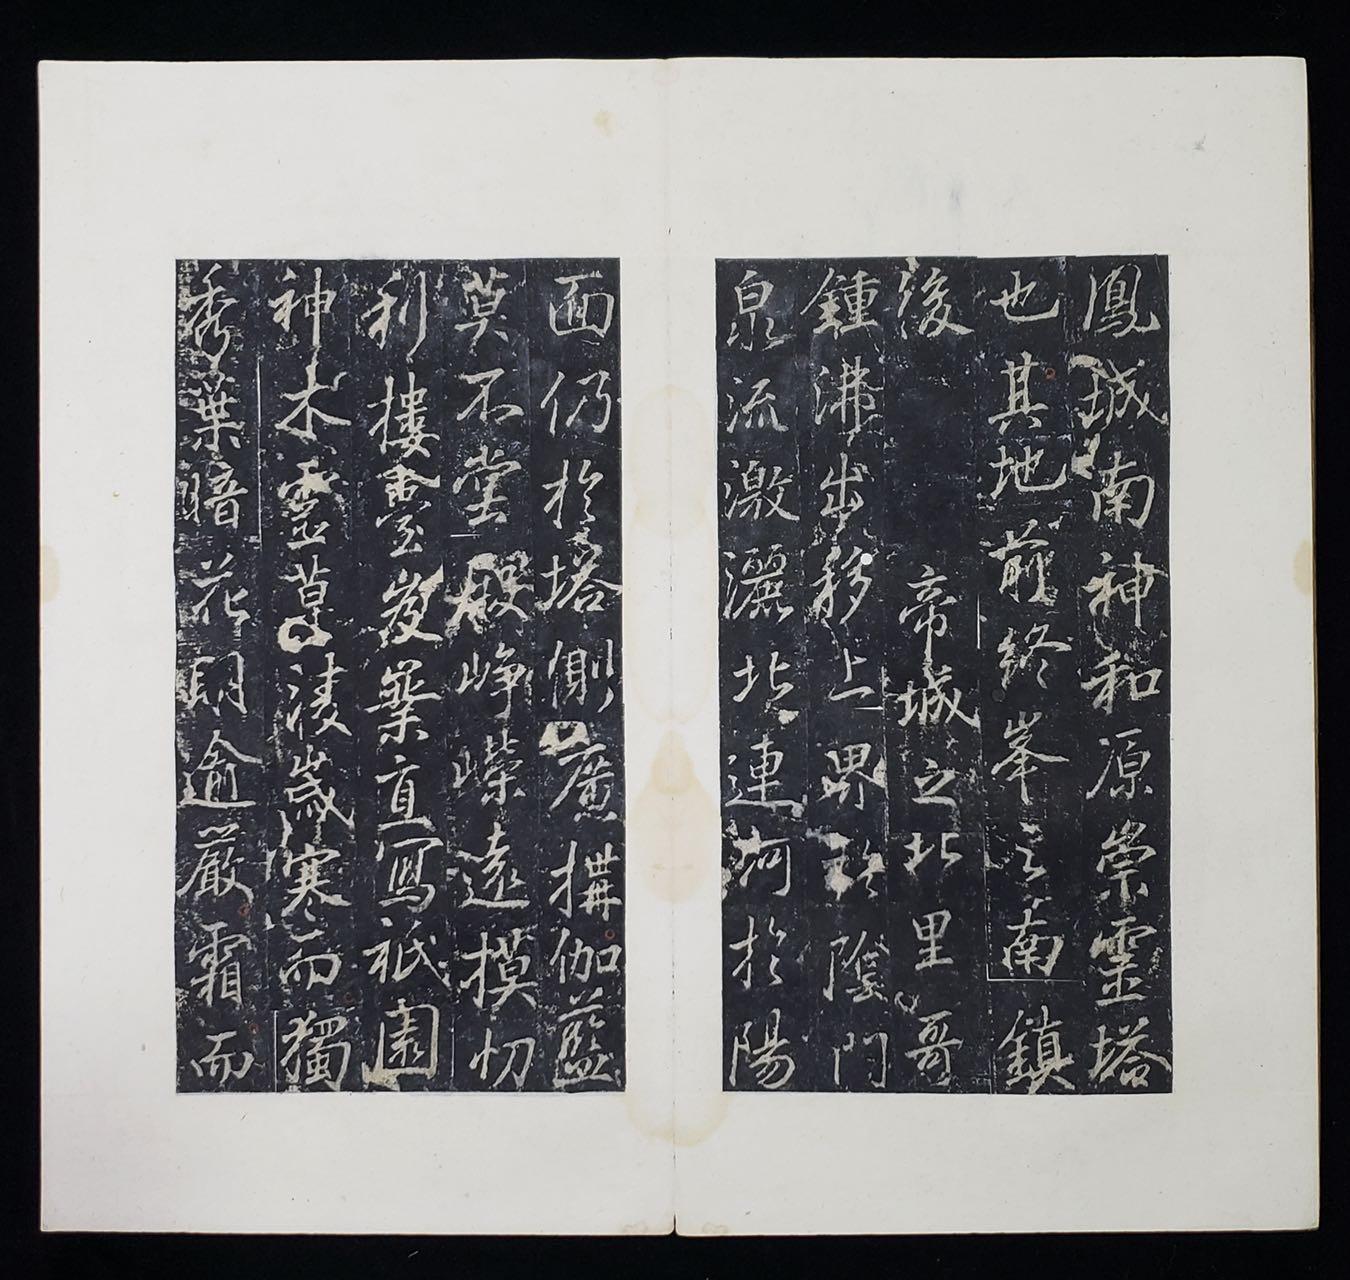 鳳城南神和原崇靈塔
也其地前終峯之南鎮
後帝城之北里哥
鍾沸出移上界於陰門
泉流激灑北連河於陽
面仍於塔側廣構伽藍
莫不堂殿崢嶸遠模忉
利樓臺岌嶪直寫祇園
神木靈草凌歲寒而獨
秀葉暗花明逾嚴霜而